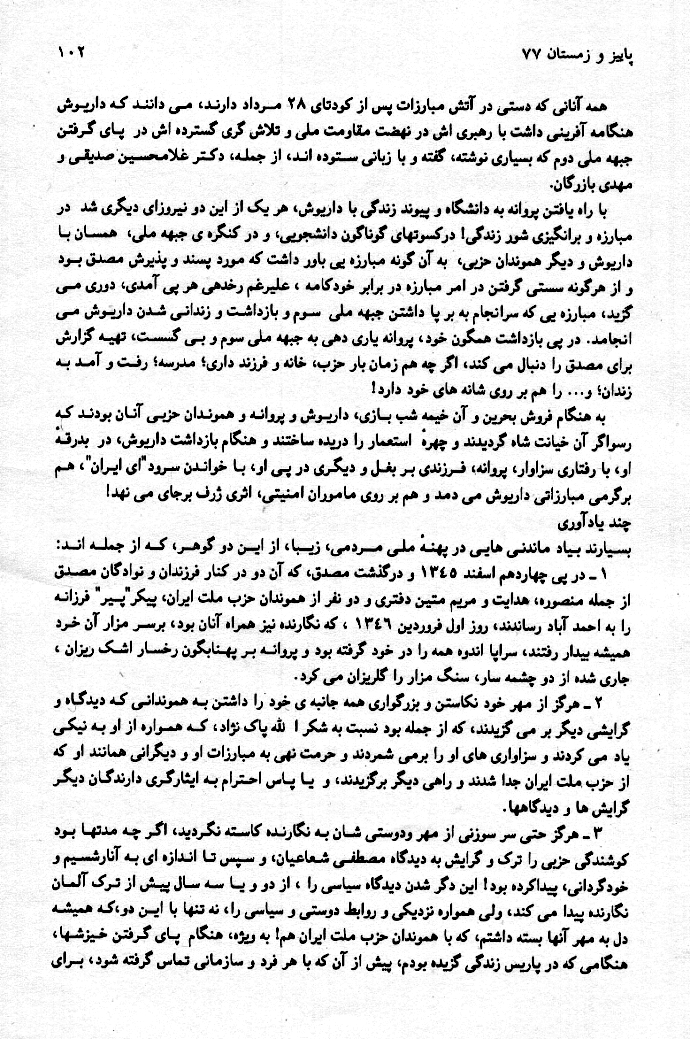 پاییز و زمستان ۷۷
۱۰۲
همه آنانی که دستی در آتش مبارزات پس از کودتای ۲۸ مرداد دارند، می دانند که داریوش
هنگامه آفرینی داشت با رهبری اش در نهضت مقاومت ملی و تلاش گری گسترده اش در پای گرفتن
جبهه ملی دوم که بسیاری نوشته، گفته و با زبانی ستوده اند، از جمله، دکتر غلامحسین صدیقی و
مهدی بازرگان.
با راه یافتن پروانه به دانشگاه و پیوند زندگی با داریوش، هر یک از این دو نیروزای دیگری شد در
مبارزه و برانگیزی شور زندگی! درکسوتهای گوناگون دانشجویی، و در کنگره ی جبهه ملی، همسان با
داریوش و دیگر هموندان حزبی، به آن گونه مبارزه یی باور داشت که مورد پسند و پذیرش مصدق بود
و از هرگونه سستی گرفتن در امر مبارزه در برابر خودکامه ، علیرغم رخدهی هر پی آمدی، دوری می
گزید، مبارزه یی که سرانجام به بر پا داشتن جبهه ملی سوم و بازداشت و زندانی شدن داریوش می
انجامد. در پی بازداشت همگون خود، پروانه یاری دهی به جبهه ملی سوم و بی گسست، تهیه گزارش
برای مصدق را دنبال می کند، اگر چه هم زمان بار حزب، خانه و فرزند داری؛ مدرسه؛ رفت و آمد به
زندان؛ و... را هم بر روی شانه های خود دارد!
به هنگام فروش بحرین و آن خیمه شب بازی، داریوش و پروانه و هموندان حزبی آنان بودند که
رسواگر آن خیانت شاه گردیدند و چهرهٔ استعمار را دریده ساختند و هنگام بازداشت داریوش، در بدرقهٔ
او، با رفتاری سزاوار، پروانه، فرزندی بر بغل و دیگری در پی او، با خواندن سرود"ای ایران"، هم
برگرمی مبارزاتی داریوش می دمد و هم بر روی ماموران امنیتی، اثری ژرف برجای می نهد!
چند یادآوری
بسیارند بیاد ماندنی هایی در پهنهٔ ملی مردمی، زیبا، از این دو گوهر، که از جمله اند:
۱ـ در پی چهاردهم اسفند ۱۳٤٥ و درگذشت مصدق، که آن دو در کنار فرزندان و نوادگان مصدق
از جمله منصوره، هدایت و مریم متین دفتری و دو نفر از هموندان حزب ملت ایران، پیکر"پیر" فرزانه
را به احمد آباد رساندند، روز اول فروردین ۱۳٤٦ ، که نگارنده نیز همراه آنان بود، برسر مزار آن خرد
همیشه بیدار رفتند، سراپا اندوه همه را در خود گرفته بود و پروانه بر پهنابگون رخسار اشک ریزان ،
جاری شده از دو چشمه سار، سنگ مزار را گلریزان می کرد.
۲ـ هرگز از مهر خود نکاستن و بزرگواری همه جانبه ی خود را داشتن به هموندانی که دیدگاه و
گرایشی دیگر بر می گزیدند، که از جمله بود نسبت به شکر ا لله پاک نژاد، که همواره از او به نیکی
یاد می کردند و سزاواری های او را برمی شمردند و حرمت نهی به مبارزات او و دیگرانی همانند او که
از حزب ملت ایران جدا شدند و راهی دیگر برگزیدند، و یا پاس احترام به ایثارگری دارندگان دیگر
گرایش ها و دیدگاهها.
۳ـ هرگز حتی سر سوزنی از مهر ودوستی شان به نگارنده کاسته نگردید، اگر چه مدتها بود
کوشندگی حزبی را ترک و گرایش به دیدگاه مصطفی شعاعیان، و سپس تا اندازه ای به آنارشسیم و
خودگردانی، پیداکرده بود! این دگر شدن دیدگاه سیاسی را ، از دو و یا سه سال پیش از ترک آلمان
نگارنده پیدا می کند، ولی همواره نزدیکی و روابط دوستی و سیاسی را، نه تنها با این دو،که همیشه
دل به مهر آنها بسته داشتم، که با هموندان حزب ملت ایران هم! به ویژه، هنگام پای گرفتن خیزشها،
هنگامی که در پاریس زندگی گزیده بودم، پیش از آن که با هر فرد و سازمانی تماس گرفته شود، برای